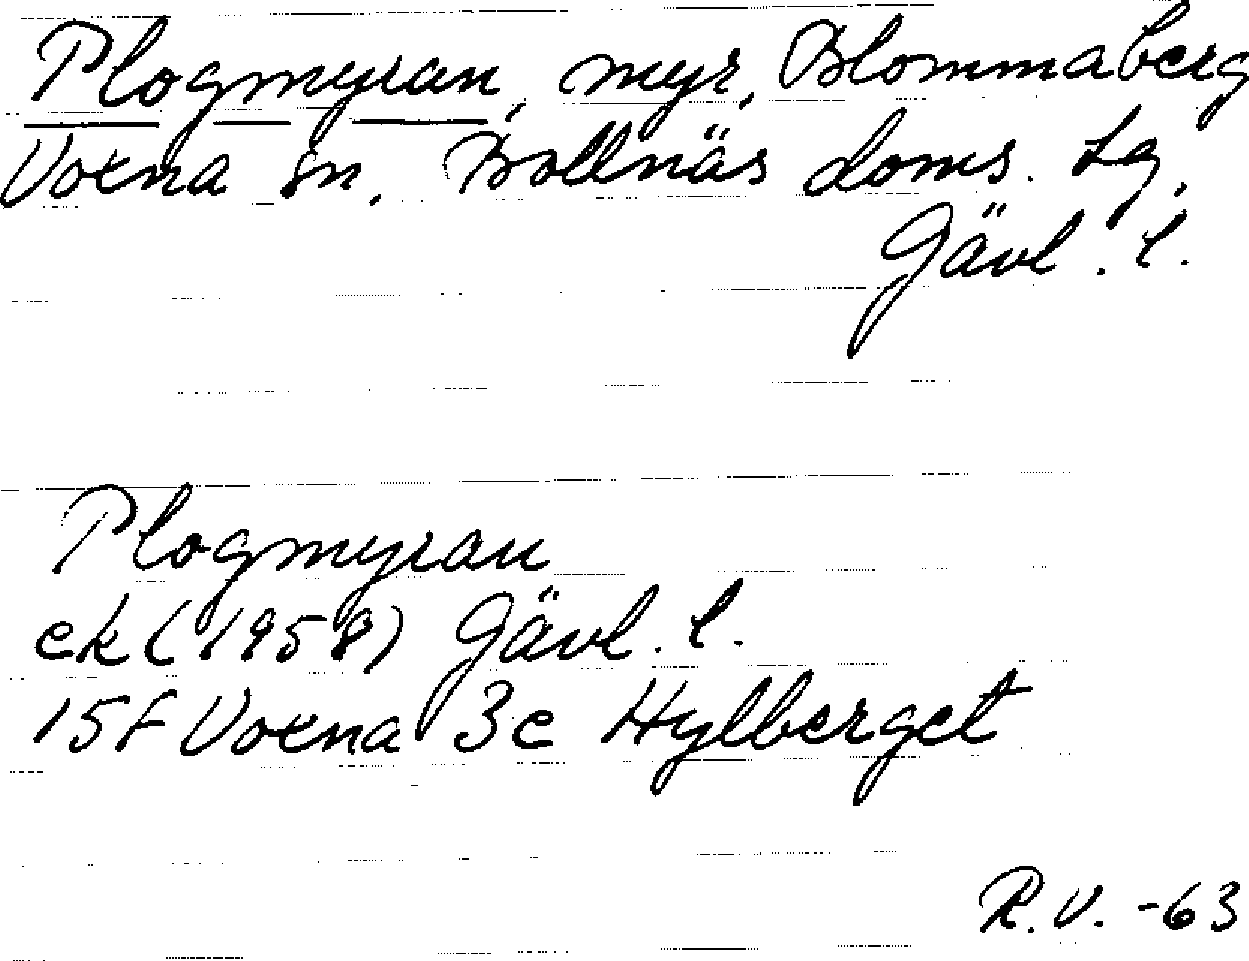 Plogmyran, myr, Blommaberg
Voxna sn. Bollnäs doms. Lg.
Gävl. l.
Plogmyran
ek (1958) Gävl. l.
15F Voxna 3e Hylberget
R.V. -63